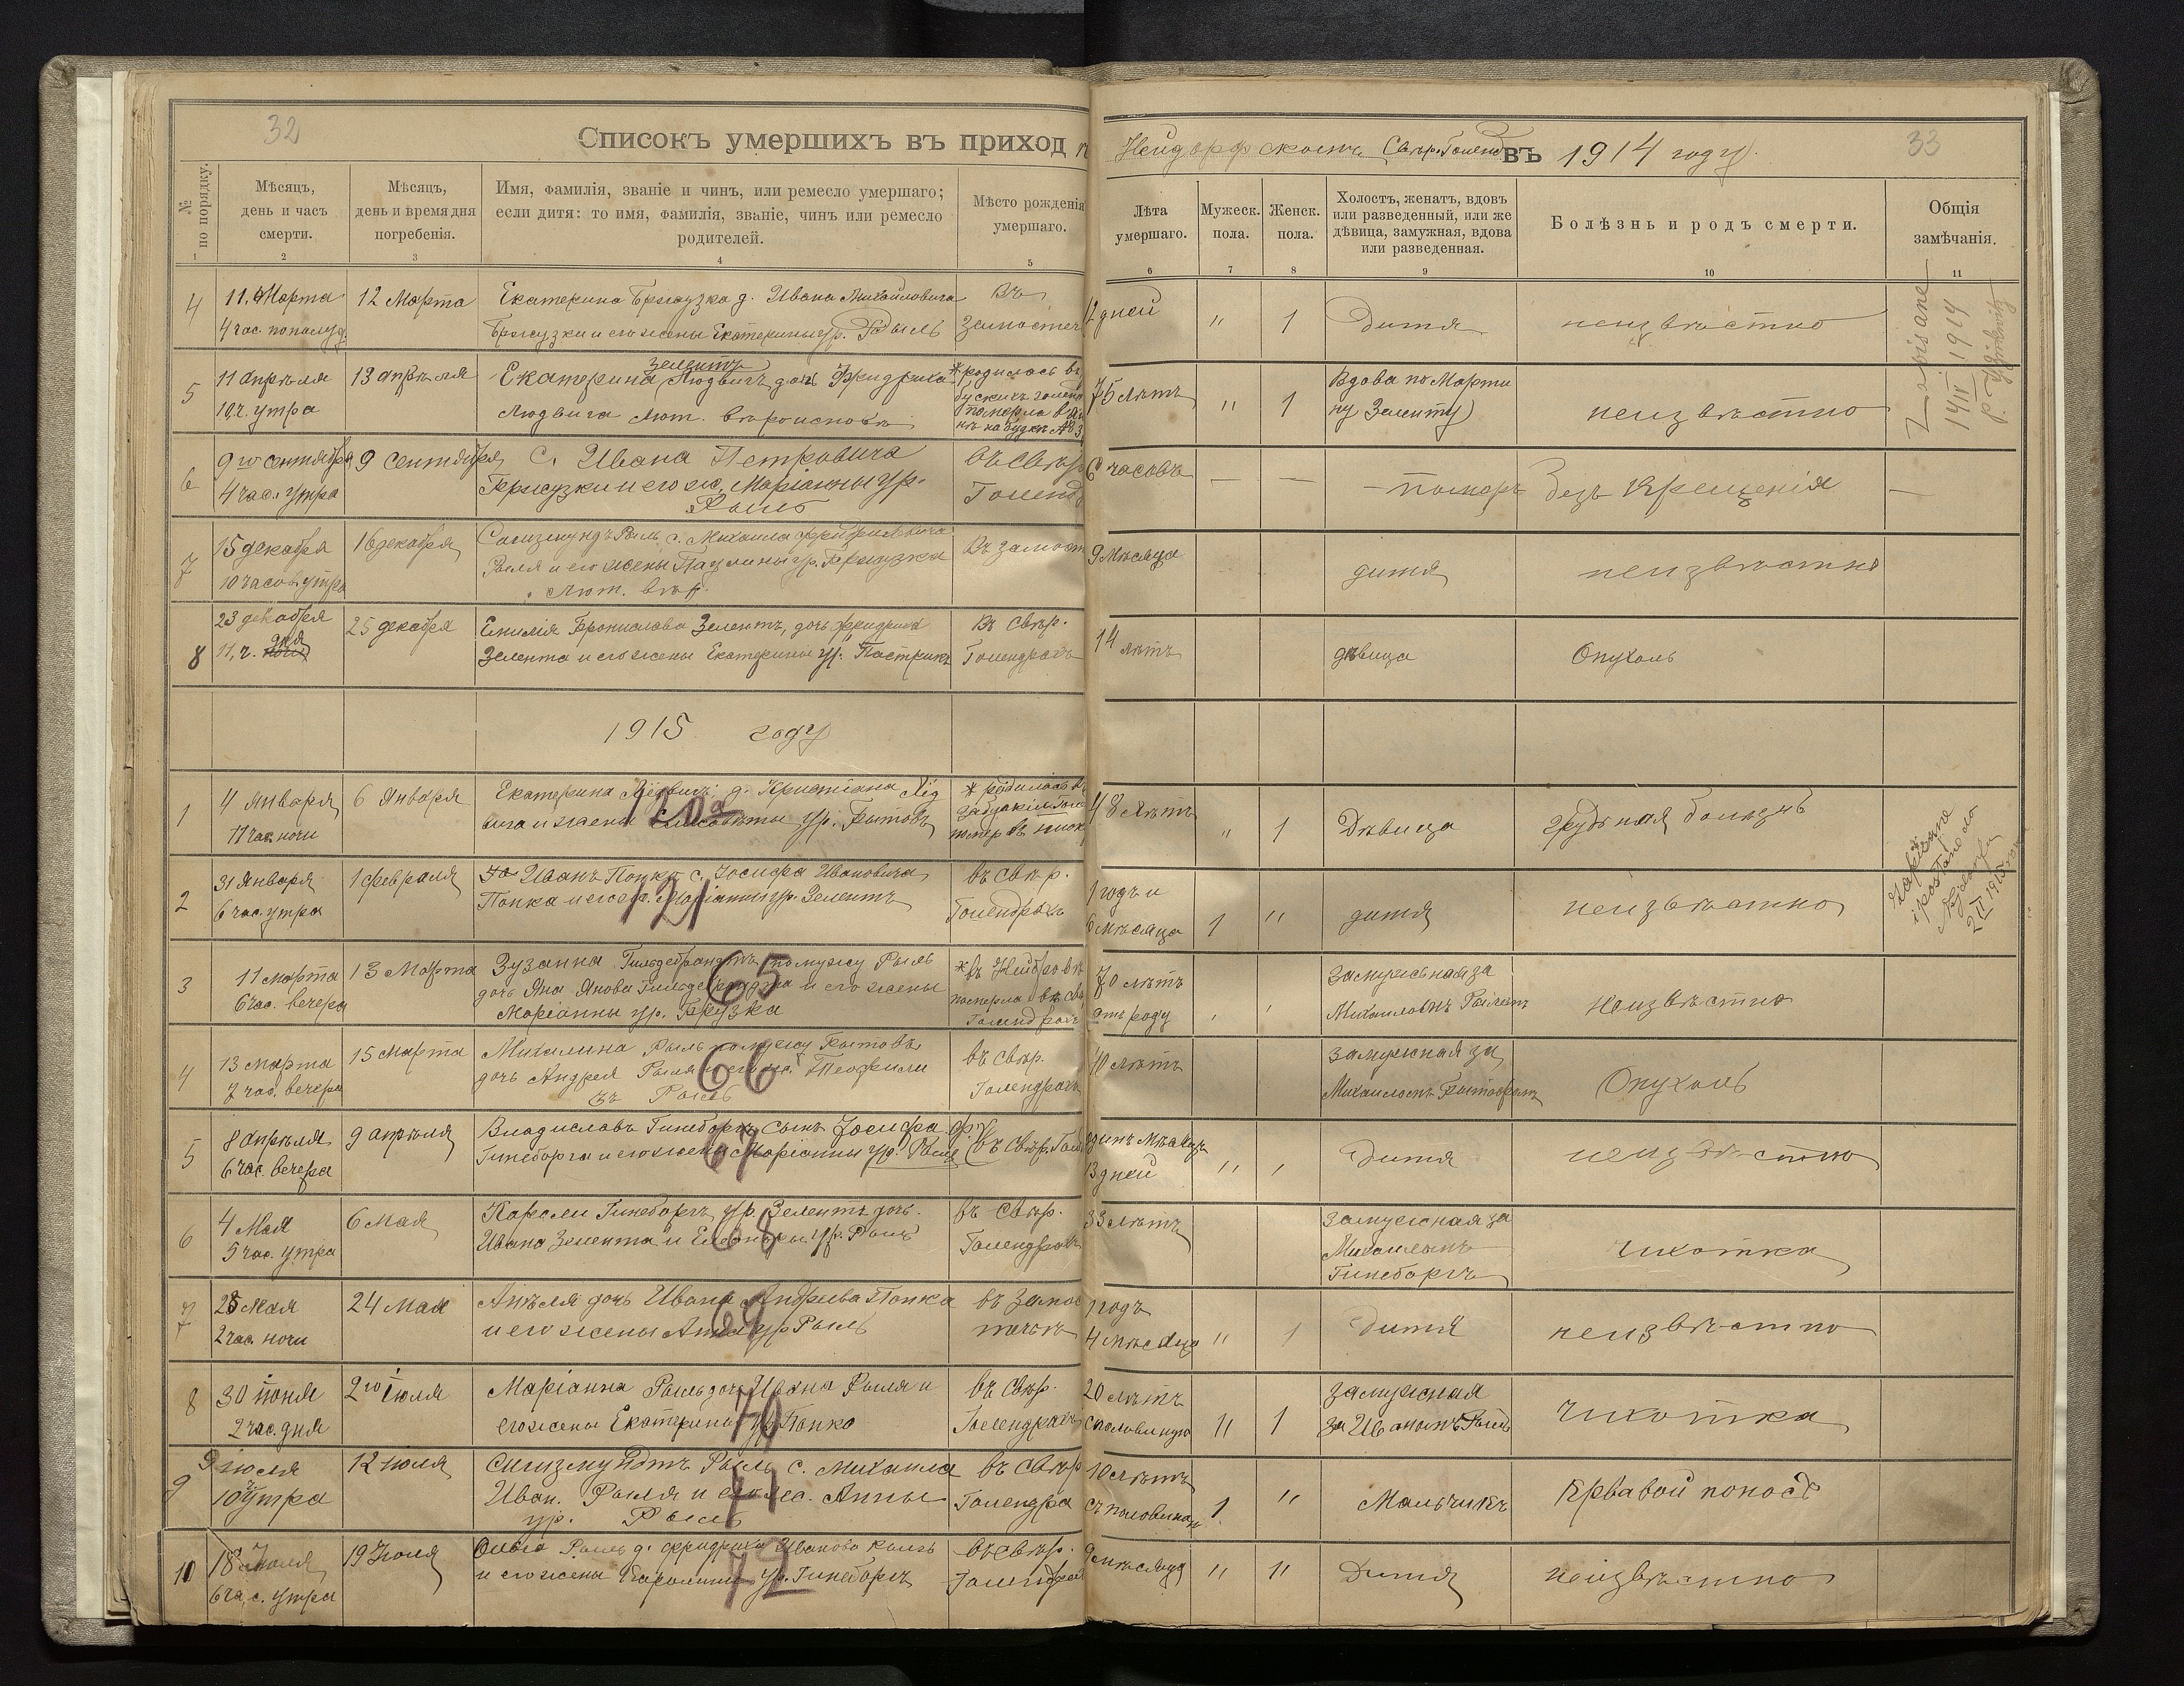 32
Списокъ умершихъ въ приход
Нейдорфскомъ Свѣр. Голенд въ 1914 году.
33
№ по порядку.
Мѣсяцъ,
день и часъ
смерти.
Мѣсяцъ,
день и время дня
погребенія.
Имя, фамилія, званіе и чинъ, или ремесло умершаго;
если дитя: то имя, фамилія, званіе, чинъ или ремесло
родителей.
Мѣсто рожденія
умершаго.
Лѣта
умершаго.
Мужеск.
пола.
Женск.
пола.
Холостъ, женатъ, вдовъ
или разведенный, или же
дѣвица, замужная, вдова
или разведенная.
Болѣзнь и родъ смерти.
Общія
замѣчанія.
1 2 3 4 5 6 7 8 9 10 11
4
11 Марта
4 час. пополуд.
12 Марта
Екатерина Брыузка д. Ивана Михайловича
Брыузки и его жены Екатерины ур. Рыль
Въ
Замостеч
12 дней
" 1
Дитя
неизвѣстно
5
11 апрѣля
10 ч. утра
13 апрѣля
Зелентъ
Екатерина Людвигъ дочь Фридриха
Людвига Лют. вѣроисповѣ
* родилась въ
75 лѣтъ
" 1
Вдова по Марти
ну Зеленту
неизвѣстно
14/II 1914
6
9го сентября
4 час. утра
9 сентября
С. Ивана Петровича
Брыузки и его ж. Маріанны ур.
Рыль
въ Свѣр
Голенд
6 часовъ
— —
— померъ безъ крещенія —
7
15 декабря
10 часов утра
16 декабря
Сигизмундъ Рыль с. Михаила
Рыля и его жены Паулины ур. Брыузка
Лют. вѣр.
Въ Замост
9 мѣсяца
дитя
неизвѣстно
8
23 декабря
дня
11 ч.
25 декабря
Емилія Брониславa Зелентъ, дочь Фридриха
Зелента и его жены Екатерины ур. Пастрикъ
Въ Свѣр.
Голендрахъ
14 лѣтъ
дѣвица
Опухоль
1915 году
1
4 Января
11 час. ночи
6 Января
Екатерина Людвигъ д. Христіана Люд
вига и жены Елисаветы ур. Бытовъ
120a
* родилась въ
48 лѣтъ
" 1
Дѣвица
грудьная болѣзнь
2
31 Января
6 час. утра
1 февраля
Иванъ Попка с. Іосифа Ивановича
Попка и его ж. Маріанны ур. Зелентъ
121
въ Свѣр.
Голендрахъ
1 годъ и
6 мѣсяца
1 "
дитя
неизвѣстно
2/II 1915
3
11 марта
6 час. вечера
13 Марта
Зузанна Гильдебрандтъ по мужу Рыль
дочь Яна Янова Гильдебрандта и его жены
Маріанны ур. Брузка
65
* въ Нейдровѣ
померла въ Свѣ
Голендрахъ
70 лѣтъ
отъ роду
замужьная за
Михаиломъ Рылемъ
Неизвѣстно
4
13 марта
7 час. вечера
15 марта
Михалина Рыль по мужу Бытовъ
дочь Андрея Рыля и его ж. Теофили
зъ Рыль
66
въ Свѣр.
Голендрахъ
40 лѣтъ
замужная за
Михаиломъ Бытовомъ
Опухоль
5
8 апрѣля
6 час. вечера
9 апрѣля
Владиславъ Гинеборгъ сынъ Іосифа Фр.
Гинеборга и его жены Маріанны ур. Рыль
67
въ Свѣр. Гол
одинъ мѣсяцъ
13 дней
" "
Дитя
неизвѣстно
6
4 Мая
5 час. утра
6 Мая
Каролина Гинеборгъ ур. Зелентъ дочь
Ивана Зелента и Елеоноры ур. Рыль
68
въ Свѣр.
Голендрахъ
33 лѣтъ
замужная за
Михаиломъ
Гинеборгъ
чихотка
7
2 час. ночи
24 мая
Анѣля дочь Ивана Андреева Попка
и его жены Анны ур Рыль
69
въ Замос
течкѣ
1 годъ
4 мѣсяца
" 1
Дитя
неизвѣстно
8
30 іюня
2 час. дня
2го Іюля
Маріанна Рыль дочь Ивана Рыля и
его жены Екатерины ур. Попко
70
въ Свѣр.
Голендрахъ
20 лѣтъ
съ половиною
" 1
замужная
за Иваномъ Рыль
чихотка
9
9 іюля
10 утра
12 іюля
Сигизмундтъ Рыль с. Михаила
Иван. Рыля и его ж. Анны
ур. Рыль
71
въ Свѣр
Голендра
10 лѣтъ
съ половиною
1 "
Мальчикъ
Крвавой поносъ
10
18 Іюля
6 час. утра
19 Іюля
Ольга Рыль д. Фридриха Иванова Рыль
и его жены Каролины ур. Гинеборгъ
72
въ Свѣр.
Голендра
9 мѣсяца
" "
Дитя
неизвѣстно